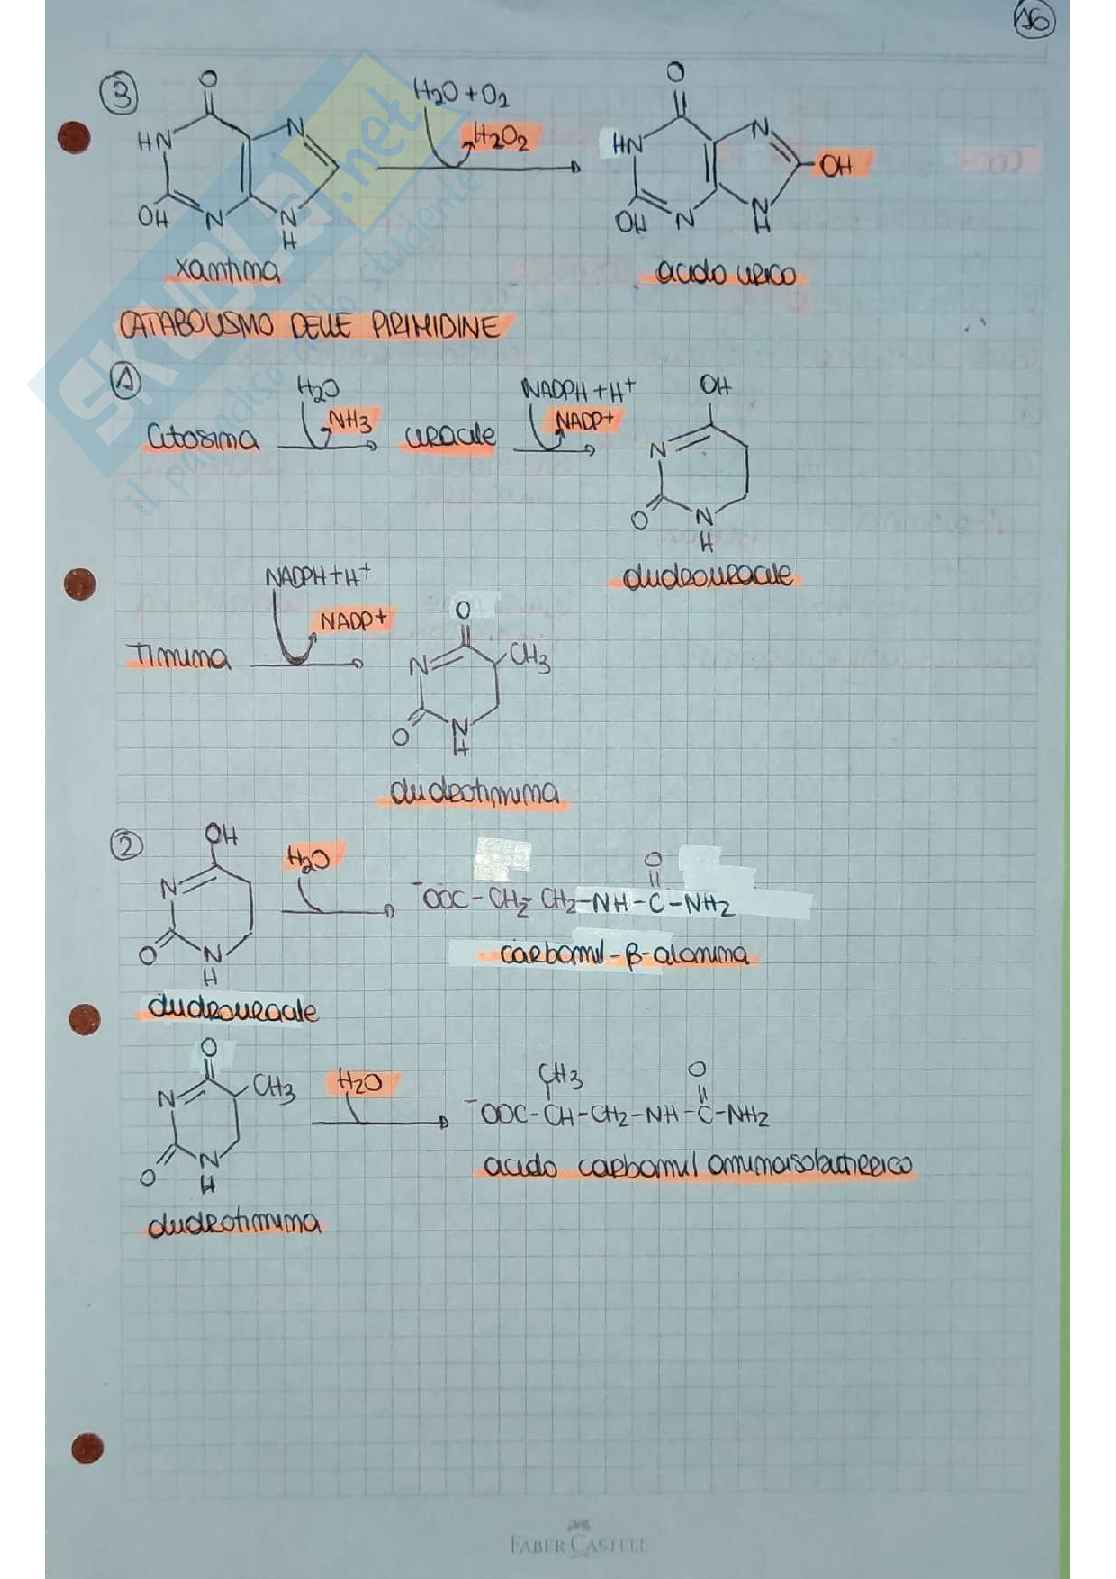 16
3
O
H2O + O2
H2O2
O
HN
N
HN
N
OH
OH
N
N
H
OH
N
N
H
xantina
acido urico
CATABOLISMO DELLE PIRIMIDINE
1
H2O
NH3
NADPH + H+
NADP+
OH
Citosina
uracile
N
O
N
H
diidrouracile
NADPH + H+
NADP+
O
Timina
N
CH3
O
N
H
diidrotimina
2
OH
H2O
O
N
-OOC - CH2 - CH2 - NH - C - NH2
O
N
H
carbamil - β - alanina
diidrouracile
O
CH3
O
N
CH3
H2O
-OOC - CH - CH2 - NH - C - NH2
O
N
H
acido carbamil amminoisobutirrico
diidrotimina
SKUOLA.net
il paradiso dello studente
FABER-CASTELL